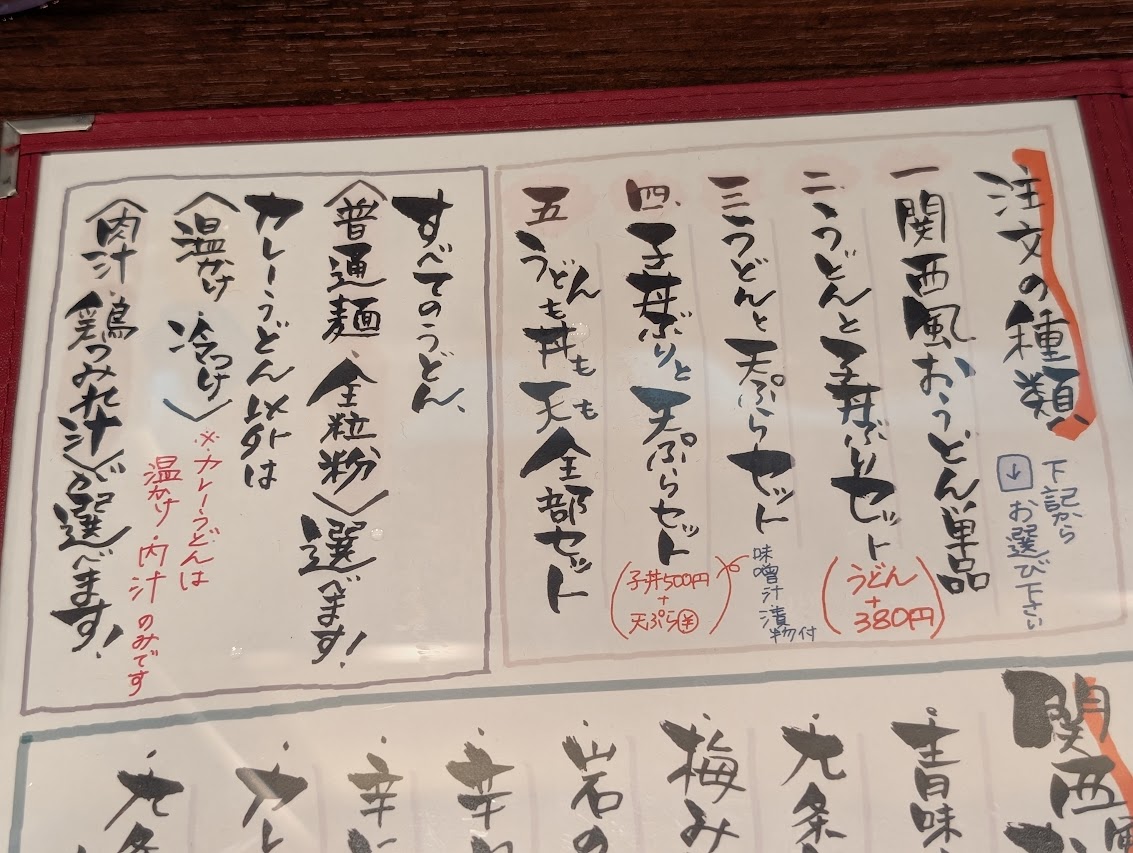 注文の種類
下記から
↓お選び下さい
一 関西風おうどん単品
二 うどんと子丼ぶりセット
(うどん
+
380円)
三 うどんと天ぷらセット
四 子丼ぶりと天ぷらセット
味噌汁
漬物付
(子丼500円
+
天ぷら¥)
五 うどんも丼も天も全部セット
すべてのうどん、
〈普通麺・全粒粉〉選べます!
カレーうどん以外は
〈温かけ・冷つけ〉
※カレーうどんは
温かけ・肉汁のみです
〈肉汁・鶏つみれ汁〉が選べます!
関西風
・青味
・九条
・梅み
・岩の
・辛
・辛に
・カレ
・九条